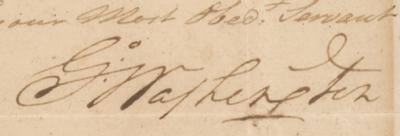 Your Most Obed.t Servant
G:o Washington